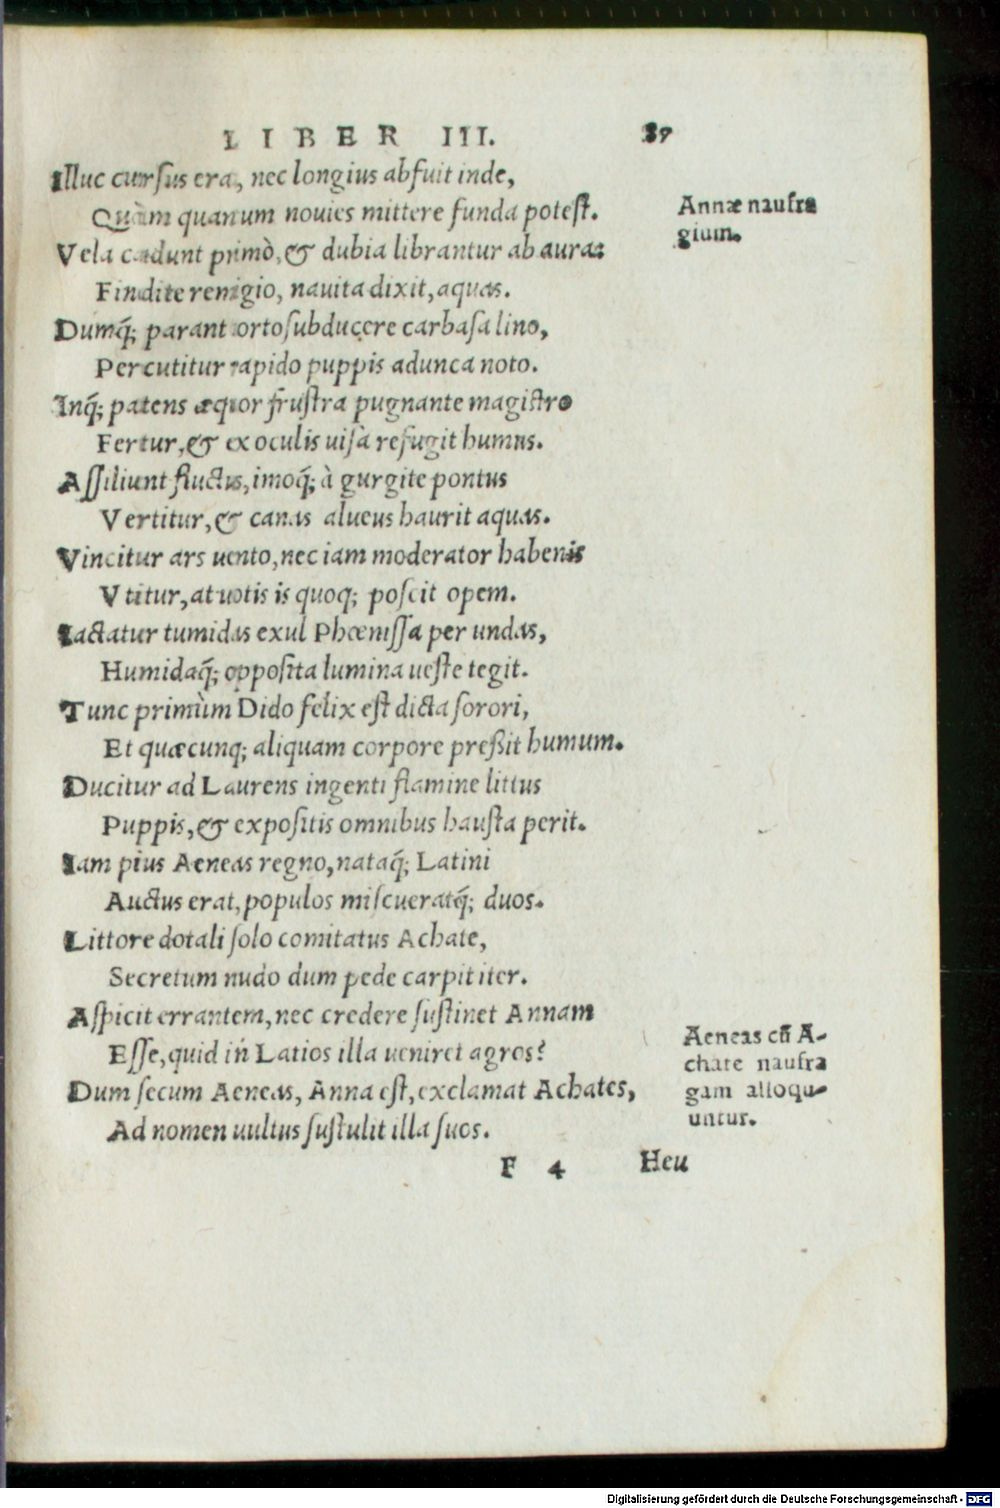 LIBER III. 87
Illuc cursus era, nec longius abfuit inde,
Quàm quantum nouies mittere funda potest.
Annæ naufra
gium.
Vela cadunt primò, & dubia librantur ab aura:
Findite remigio, nauita dixit, aquas.
Dumq́; parant torto subducere carbasa lino,
Percutitur rapido puppis adunca noto.
Inq́; patens æquor frustra pugnante magistro
Fertur, & ex oculis uisa refugit humus.
Assiliunt fluctus, imoq́; à gurgite pontus
Vertitur, & canas alueus haurit aquas.
Vincitur ars uento, nec iam moderator habenis
Vtitur, at uotis is quoq; poscit opem.
Iactatur tumidas exul Phœnissa per undas,
Humidaq́; opposita lumina ueste tegit.
Tunc primùm Dido felix est dicta sorori,
Et quæcunq; aliquam corpore preßit humum.
Ducitur ad Laurens ingenti flamine littus
Puppis, & expositis omnibus hausta perit.
Iam pius Aeneas regno, nataq́; Latini
Auctus erat, populos miscueratq́; duos.
Littore dotali solo comitatus Achate,
Secretum nudo dum pede carpit iter.
Aspicit errantem, nec credere sustinet Annam
Esse, quid in Latios illa ueniret agros?
Aeneas cũ A-
chate naufra
gam alloqu-
untur.
Dum secum Aeneas, Anna est, exclamat Achates,
Ad nomen uultus sustulit illa suos.
F 4 Heu
Digitalisierung gefördert durch die Deutsche Forschungsgemeinschaft - DFG